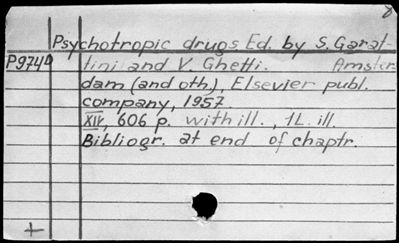 8
Psychotropic drugs Ed. by S. Garat-
P974D tini and V. Ghetti. Amster-
dam (and oth), Elsevier publ.
company, 1957.
XIV, 606 p. with ill., 1L. ill.
Bibliogr. at end of chaptr.
+